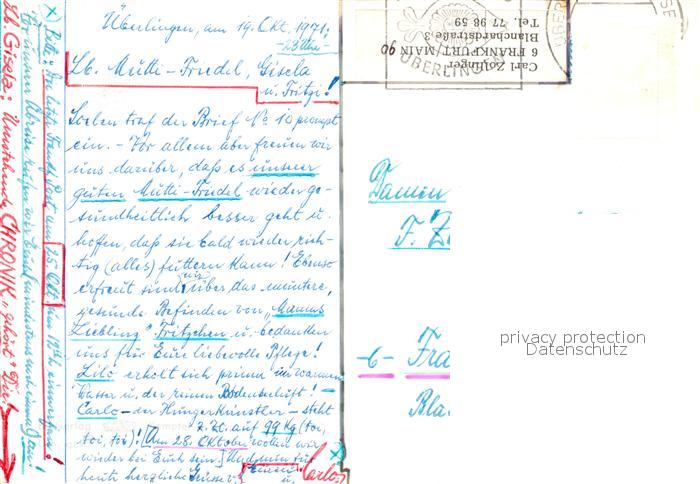 Überlingen, am 19. Okt. 1971,
-23 Uhr-
Lb. Mutti-Friedel, Gisela
u. Fritzi!
Soeben traf der Brief No 10 prompt
ein. - Vor allem aber freuen wir
uns darüber, daß es unserer
guten Mutti-Friedel wieder ge-
sundheitlich besser geht u.
hoffen, daß sie bald wieder rich-
tig (alles) futtern kann! Ebenso
erfreut sind wir über das muntere,
gesunde Befinden von "Mamas
Liebling" Fritzchen u. bedanken
uns für Eure liebevolle Pflege!
Lilo erholt sich prima im warmen
Wasser u. der reinen Bodenseeluft! -
Carlo - der Hungerkünstler - steht
z. Zt. auf 99 Kg (toi,
toi, toi)! [Am 28. Oktober wollen wir
wieder bei Euch sein.] Und nun für
heute herzliche Grüsse v.
Euren
u. Carlo
x) Bitte: die letzte Frankf. Post am 25. Okt. bis 12h einwerfen!
Vor unserer Abreise rufen wir Euch mindestens noch einmal an!
Lb. Gisela: Umstehende "CHRONIK" gehört Dir!
Carl Zolfinger
6 FRANKFURT/MAIN 90
Blanchardstraße 3
Tel. 77 98 59
ÜBERLINGEN
Damen
F. Z
-6- Fra
Bla
privacy protection
Datenschutz